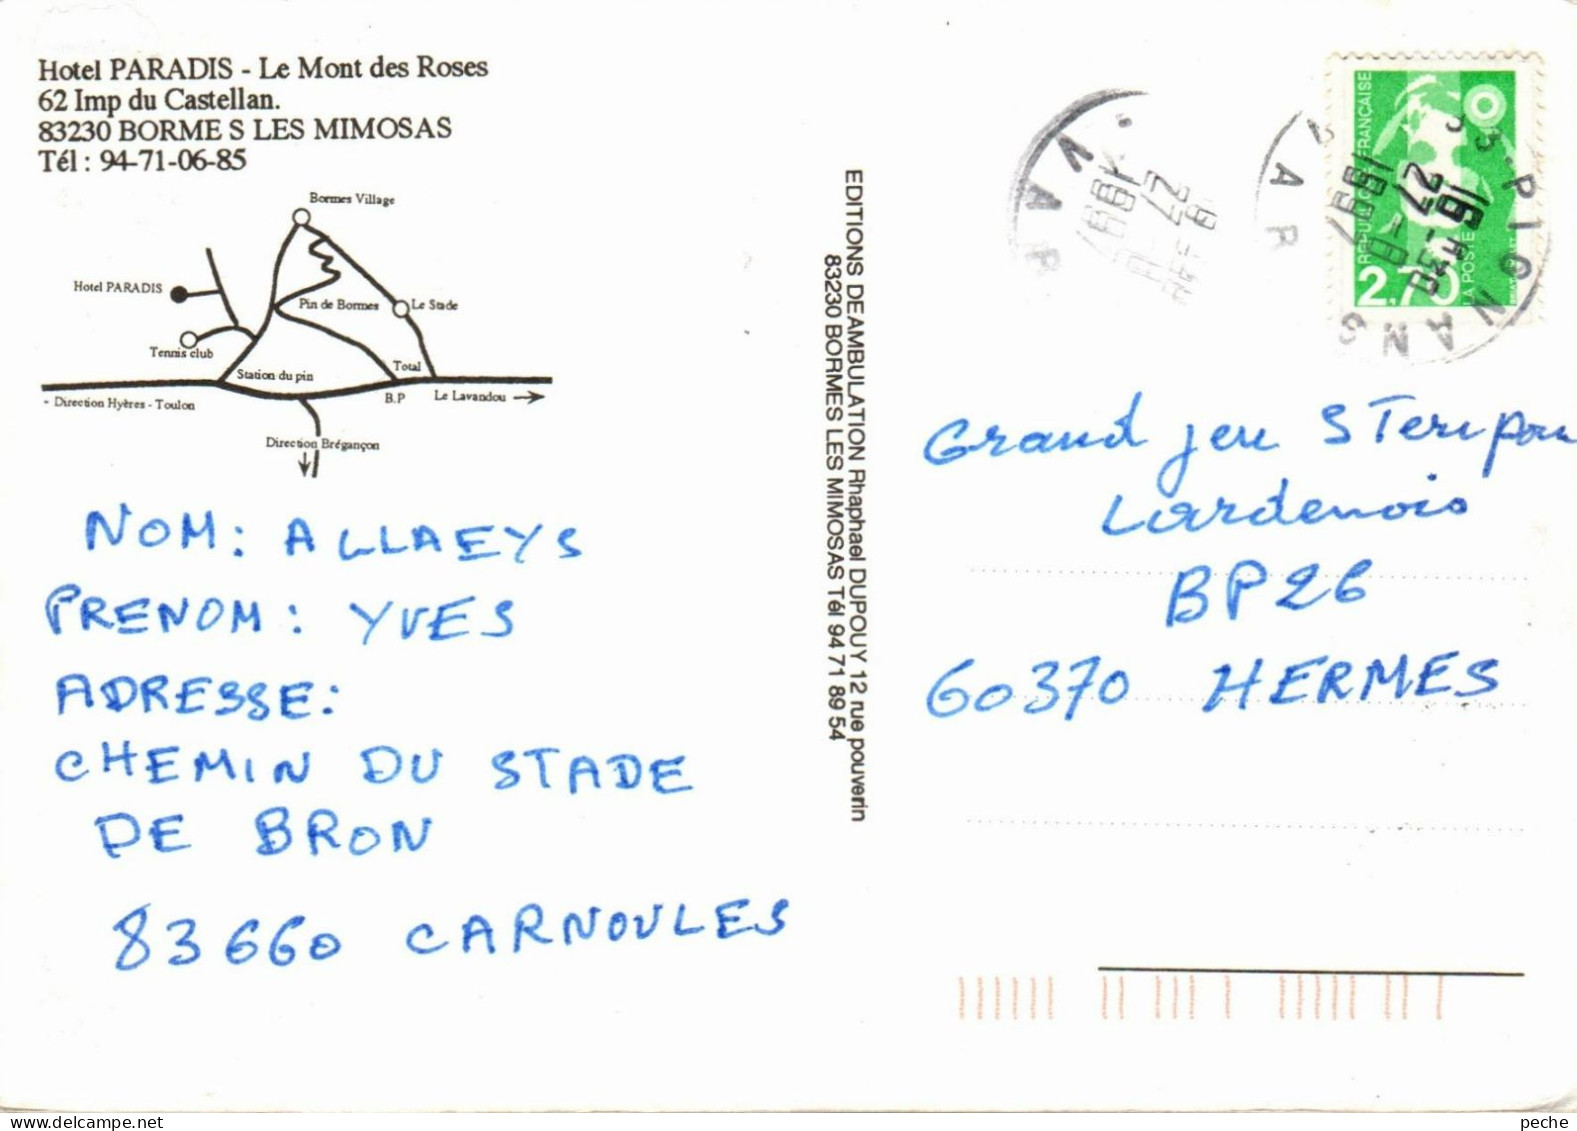 Hotel PARADIS - Le Mont des Roses
62 Imp du Castellan.
83230 BORME S LES MIMOSAS
Tél : 94-71-06-85
Bormes Village
Hotel PARADIS
Pin de Bormes
Le Stade
Tennis club
Station du pin
Total
B.P
Le Lavandou
- Direction Hyères - Toulon
Direction Brégançon
NOM: ALLAEYS
PRENOM: YVES
ADRESSE:
CHEMIN DU STADE
DE BRON
83660 CARNOULES
EDITIONS DEAMBULATION Rhaphael DUPOUY 12 rue pouverin
83230 BORMES LES MIMOSAS Tél 94 71 89 54
VAR
27
1997
VAR
83 · PIGNANS
16 H 30
27
1997
REPUBLIQUE FRANÇAISE
2,70
LA POSTE
Grand jeu STeripan
Lardenois
BP26
60370 HERMES
peche